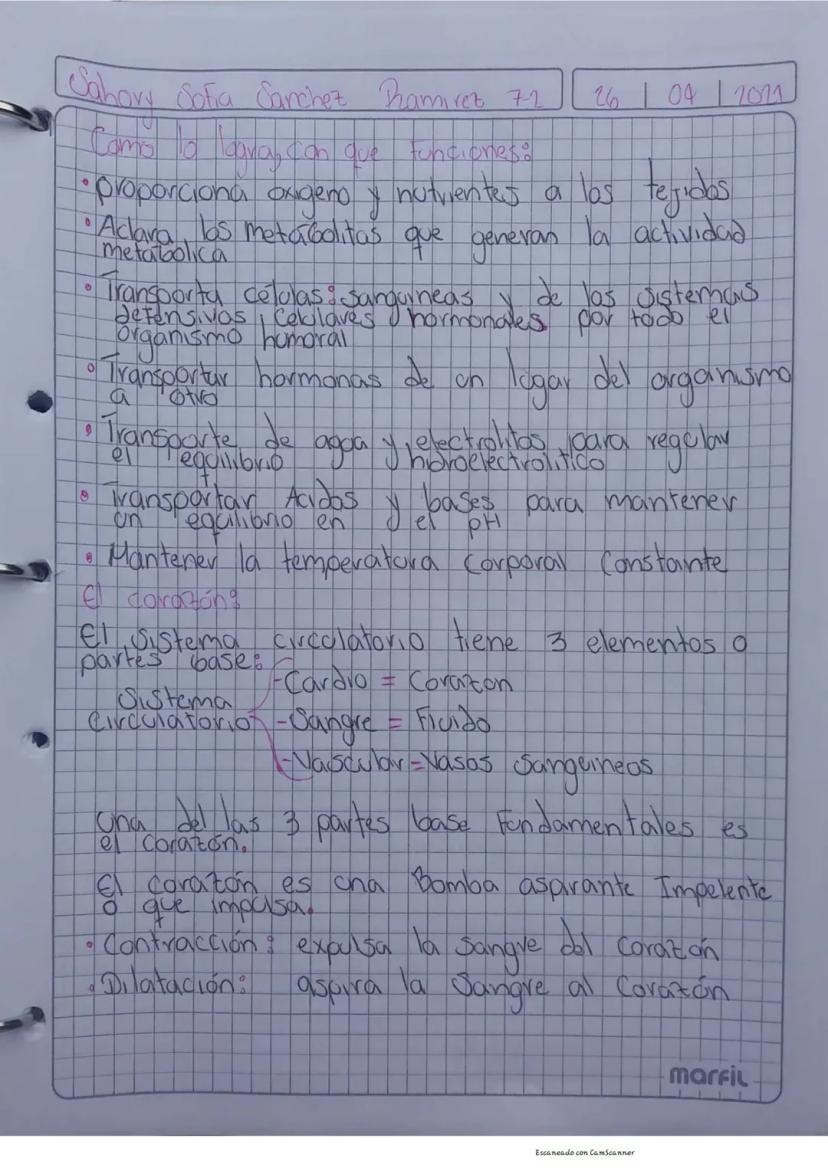 Sahory Sofia Sanchez Ramirez 7-2 26 | 04 | 2021
Como lo logra, con que funciones:
• proporciona oxigeno y nutrientes a los tejidos
• Aclara los metabolitas que generan la actividad
metabolica
• Transporta celulas: sanguineas y de los sistemas
defensivos, celulares y hormonales por todo el
organismo humoral
• Transportar hormonas de un lugar del organismo
a otro
• Transporte de agua y electrolitos para regular
el equilibrio hidroelectrolitico
• Transportar Acidos y bases para mantener
un equilibrio en el pH
• Mantener la temperatura corporal Constante
El corazón:
El sistema circulatorio tiene 3 elementos o
partes base:
-Cardio = Corazon
Sistema
circulatorio -Sangre = Fluido
-Vascular = Vasos Sanguineos
Una del las 3 partes base Fundamentales es
el Corazón.
El corazón es una Bomba aspirante Impelente
o que impulsa.
• Contracción: expulsa la sangre del Corazón
• Dilatación: aspira la Sangre al Corazón
marfil
Escaneado con CamScanner